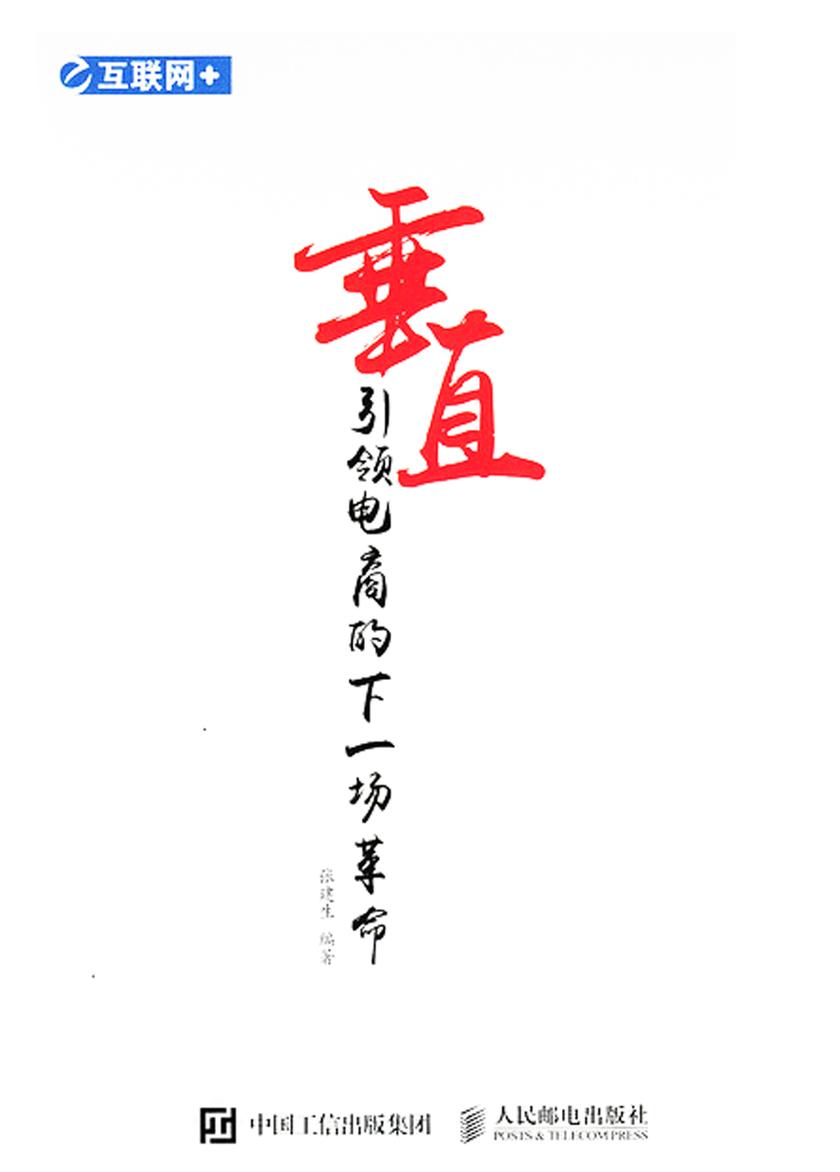 互联网+
垂直
引领电商的下一场革命
张建生 编著
中国工信出版集团
人民邮电出版社
POSTS & TELECOM PRESS